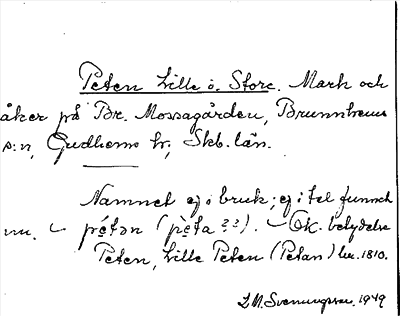 Peten Lille o. Store. Mark och
åker på Br. Mossagården, Brunnhems
s:n, Gudhems hr, Skb. län.
Namnet ej i bruk; ej i tel funnet
nu. – pétən (pèta ? ?). – Ok. betydelse
Peten, Lille Peten (Petan) lm. 1810.
L.M. Svenungsson 1949